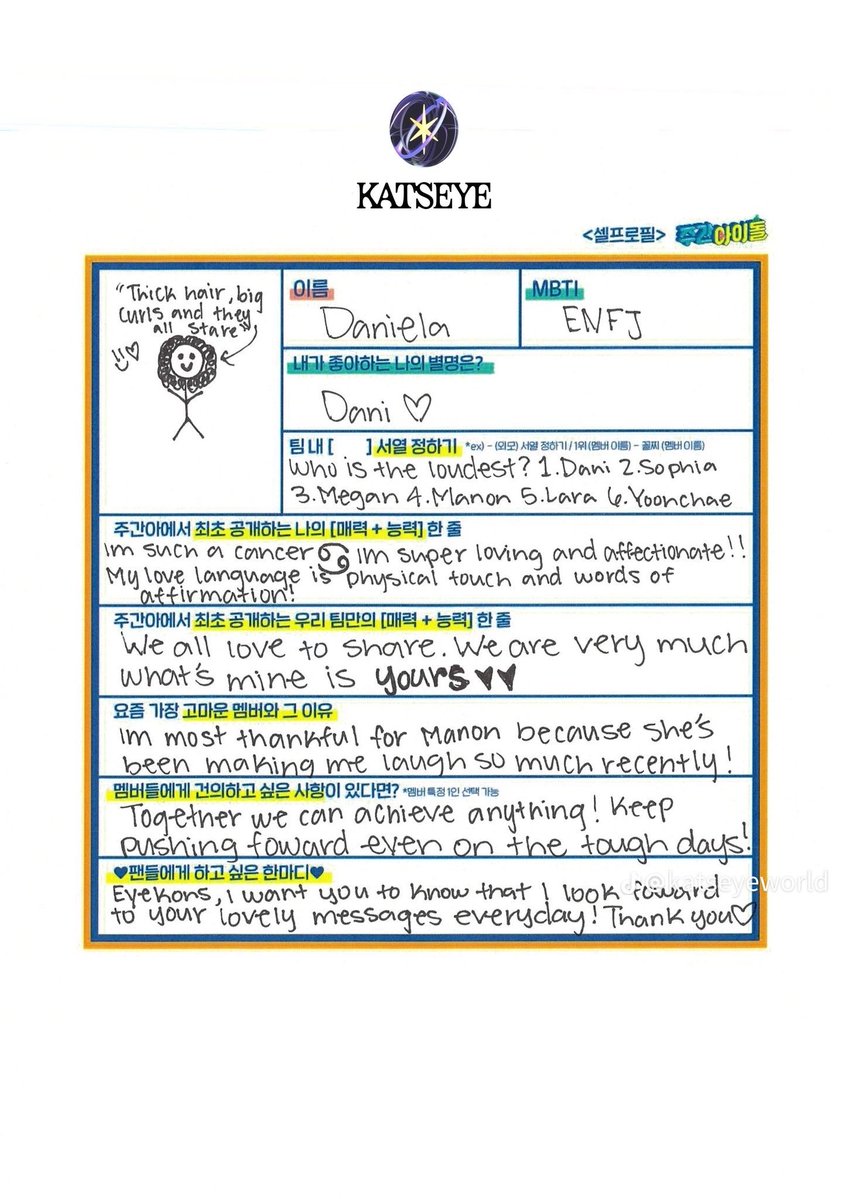 KATSEYE
<셀프로필> 주간아이돌
"Thick hair, big
curls and they
all stare"
이름
Daniela
MBTI
ENFJ
내가 좋아하는 나의 별명은?
Dani ♡
팀 내 [ ] 서열 정하기 *ex) - (외모) 서열 정하기 / 1위 (멤버 이름) - 꼴찌 (멤버 이름)
Who is the loudest? 1.Dani 2.Sophia
3.Megan 4.Manon 5.Lara 6.Yoonchae
주간아에서 최초 공개하는 나의 [매력 + 능력] 한 줄
Im such a cancer ♋ Im super loving and affectionate!!
My love language is physical touch and words of
affirmation!
주간아에서 최초 공개하는 우리 팀만의 [매력 + 능력] 한 줄
We all love to share. We are very much
what's mine is yours ♥♥
요즘 가장 고마운 멤버와 그 이유
Im most thankful for Manon because she's
been making me laugh so much recently!
멤버들에게 건의하고 싶은 사항이 있다면? *멤버 특정 1인 선택 가능
Together we can achieve anything! Keep
pushing foward even on the tough days!
♥팬들에게 하고 싶은 한마디♥
Eyekons, i want you to know that I look foward
to your lovely messages everyday! Thank you♡
@katseyeworld